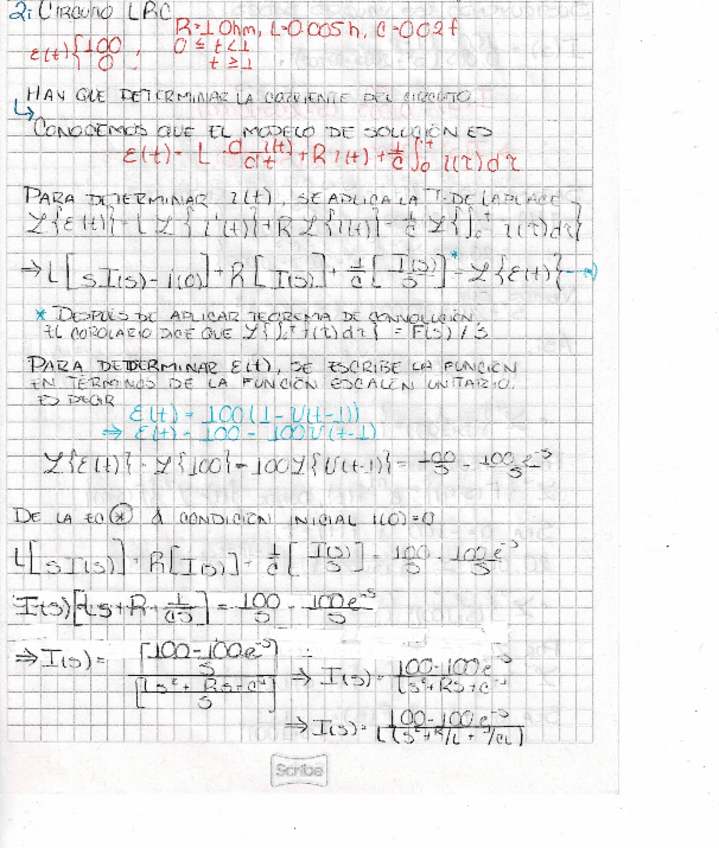 2: CIRCUITO LRC
R=1 Ohm, L=0.005 h, C=0.02 f
E(t){100, 0 ≤ t<1
0 ; t ≥ 1
HAY QUE DETERMINAR LA CORRIENTE DEL CIRCUITO
↳ CONOCEMOS QUE EL MODELO DE SOLUCIÓN ES
E(t)= L d i(t)/dt + R i(t) + 1/c ∫₀ᵗ i(τ)dτ
PARA DETERMINAR i(t), SE APLICA LA T. DE LAPLACE
ℒ{E(t)}=Lℒ{i'(t)}+Rℒ{i(t)}+1/c ℒ{∫₀ᵗ i(τ)dτ}
⇒L[sI(s)-i(0)]+R[I(s)]+1/c[I(s)/s]*=ℒ{E(t)}
* DESPUÉS DE APLICAR TEOREMA DE CONVOLUCIÓN,
EL COROLARIO DICE QUE ℒ{∫₀ᵗ f(τ)dτ} = F(s)/s
PARA DETDERMINAR E(t), SE ESCRIBE LA FUNCIÓN
EN TÉRMINOS DE LA FUNCIÓN ESCALÓN UNITARIO.
ES DECIR
E(t)= 100(1-U(t-1))
⇒ E(t)= 100-100U(t-1)
ℒ{E(t)}=ℒ{100}-100ℒ{U(t-1)}=100/s - 100e⁻ˢ/s
DE LA EC ⊛ & CONDICIÓN INICIAL i(0)=0
L[sI(s)]+R[I(s)]+1/c[I(s)/s]=100/s - 100e⁻ˢ/s
I(s)[Ls+R+1/cs]=100/s - 100e⁻ˢ/s
⇒I(s)= [100-100e⁻ˢ/s]/[Ls²+Rs+c⁻¹/s] ⇒ I(s)= 100-100e⁻ˢ/Ls²+Rs+c⁻¹
⇒I(s)= 100-100e⁻ˢ/L(s²+R/L+1/CL)
Scribe